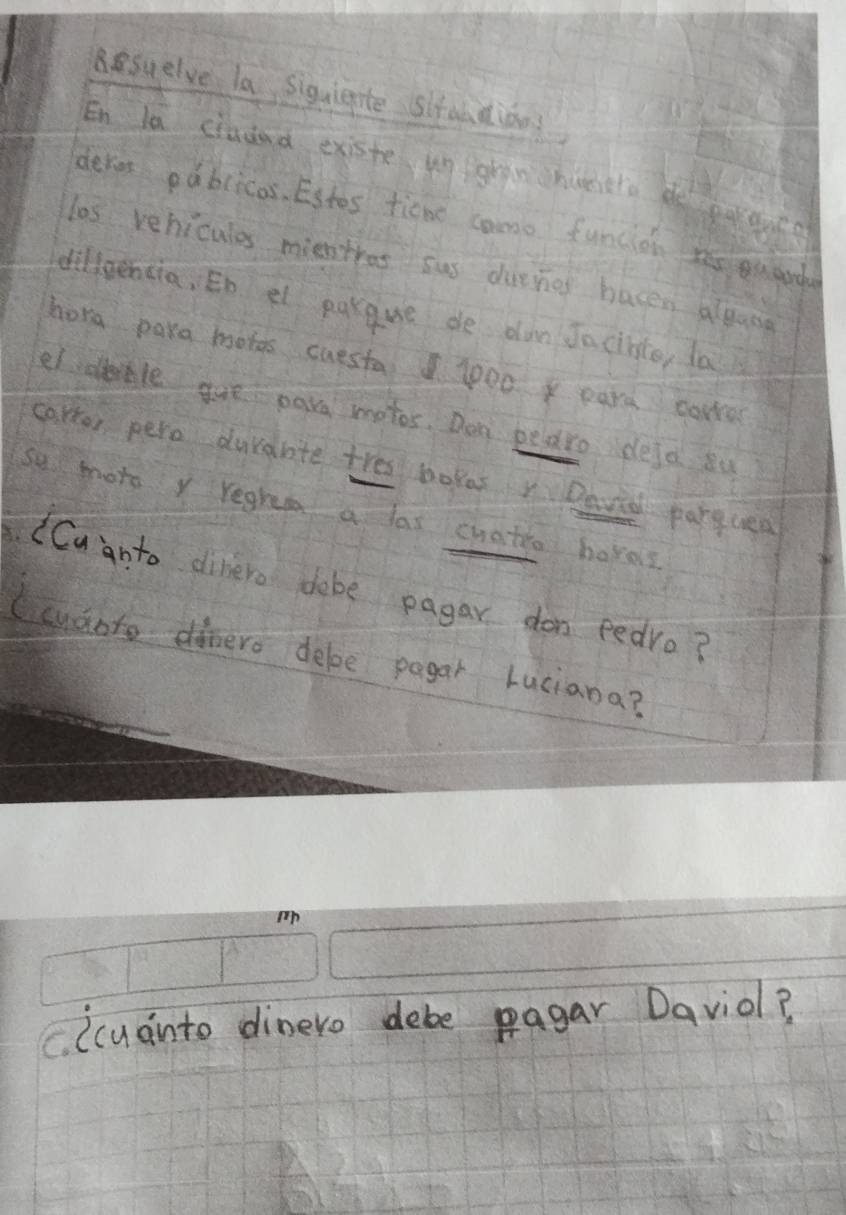 Resuelve la siguiente situación:
En la ciudad existe un gran número de parquea
deros públicos. Estos tiene como función guardar
los vehículos mientras sus dueños hacen alguna
diligencia. En el parque de don Jacinto, la
hora para motos cuesta $ 1000 y para carros
el doble que para motos. Don pedro deja su
carro, pero durante tres horas y David parquea
su moto y regresa a las cuatro horas.
¿Cuánto dinero debe pagar don Pedro?
¿cuánto dinero debe pagar Luciana?
C. ¿cuánto dinero debe pagar David?